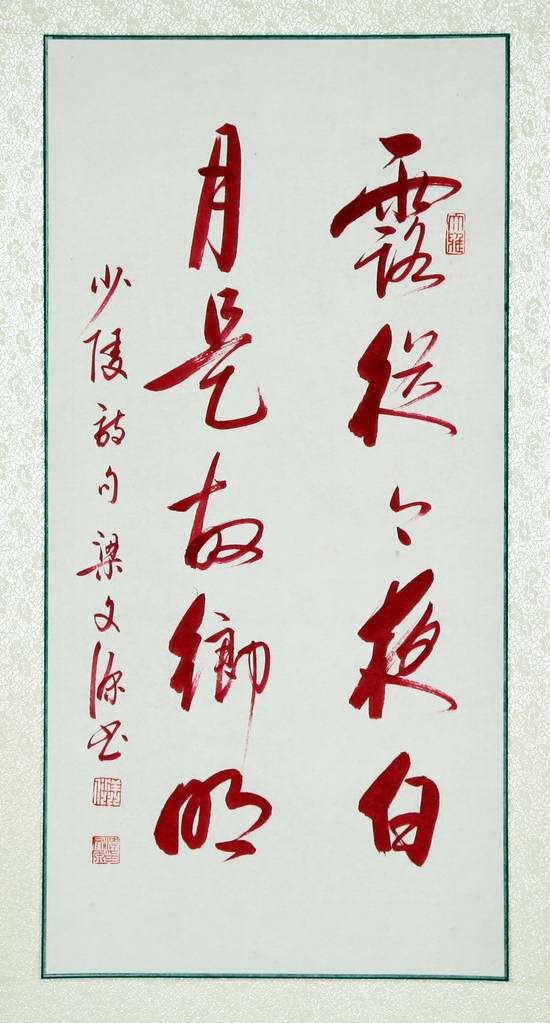 露從今夜白
大雅
月是故鄉明
少陵詩句梁文源书